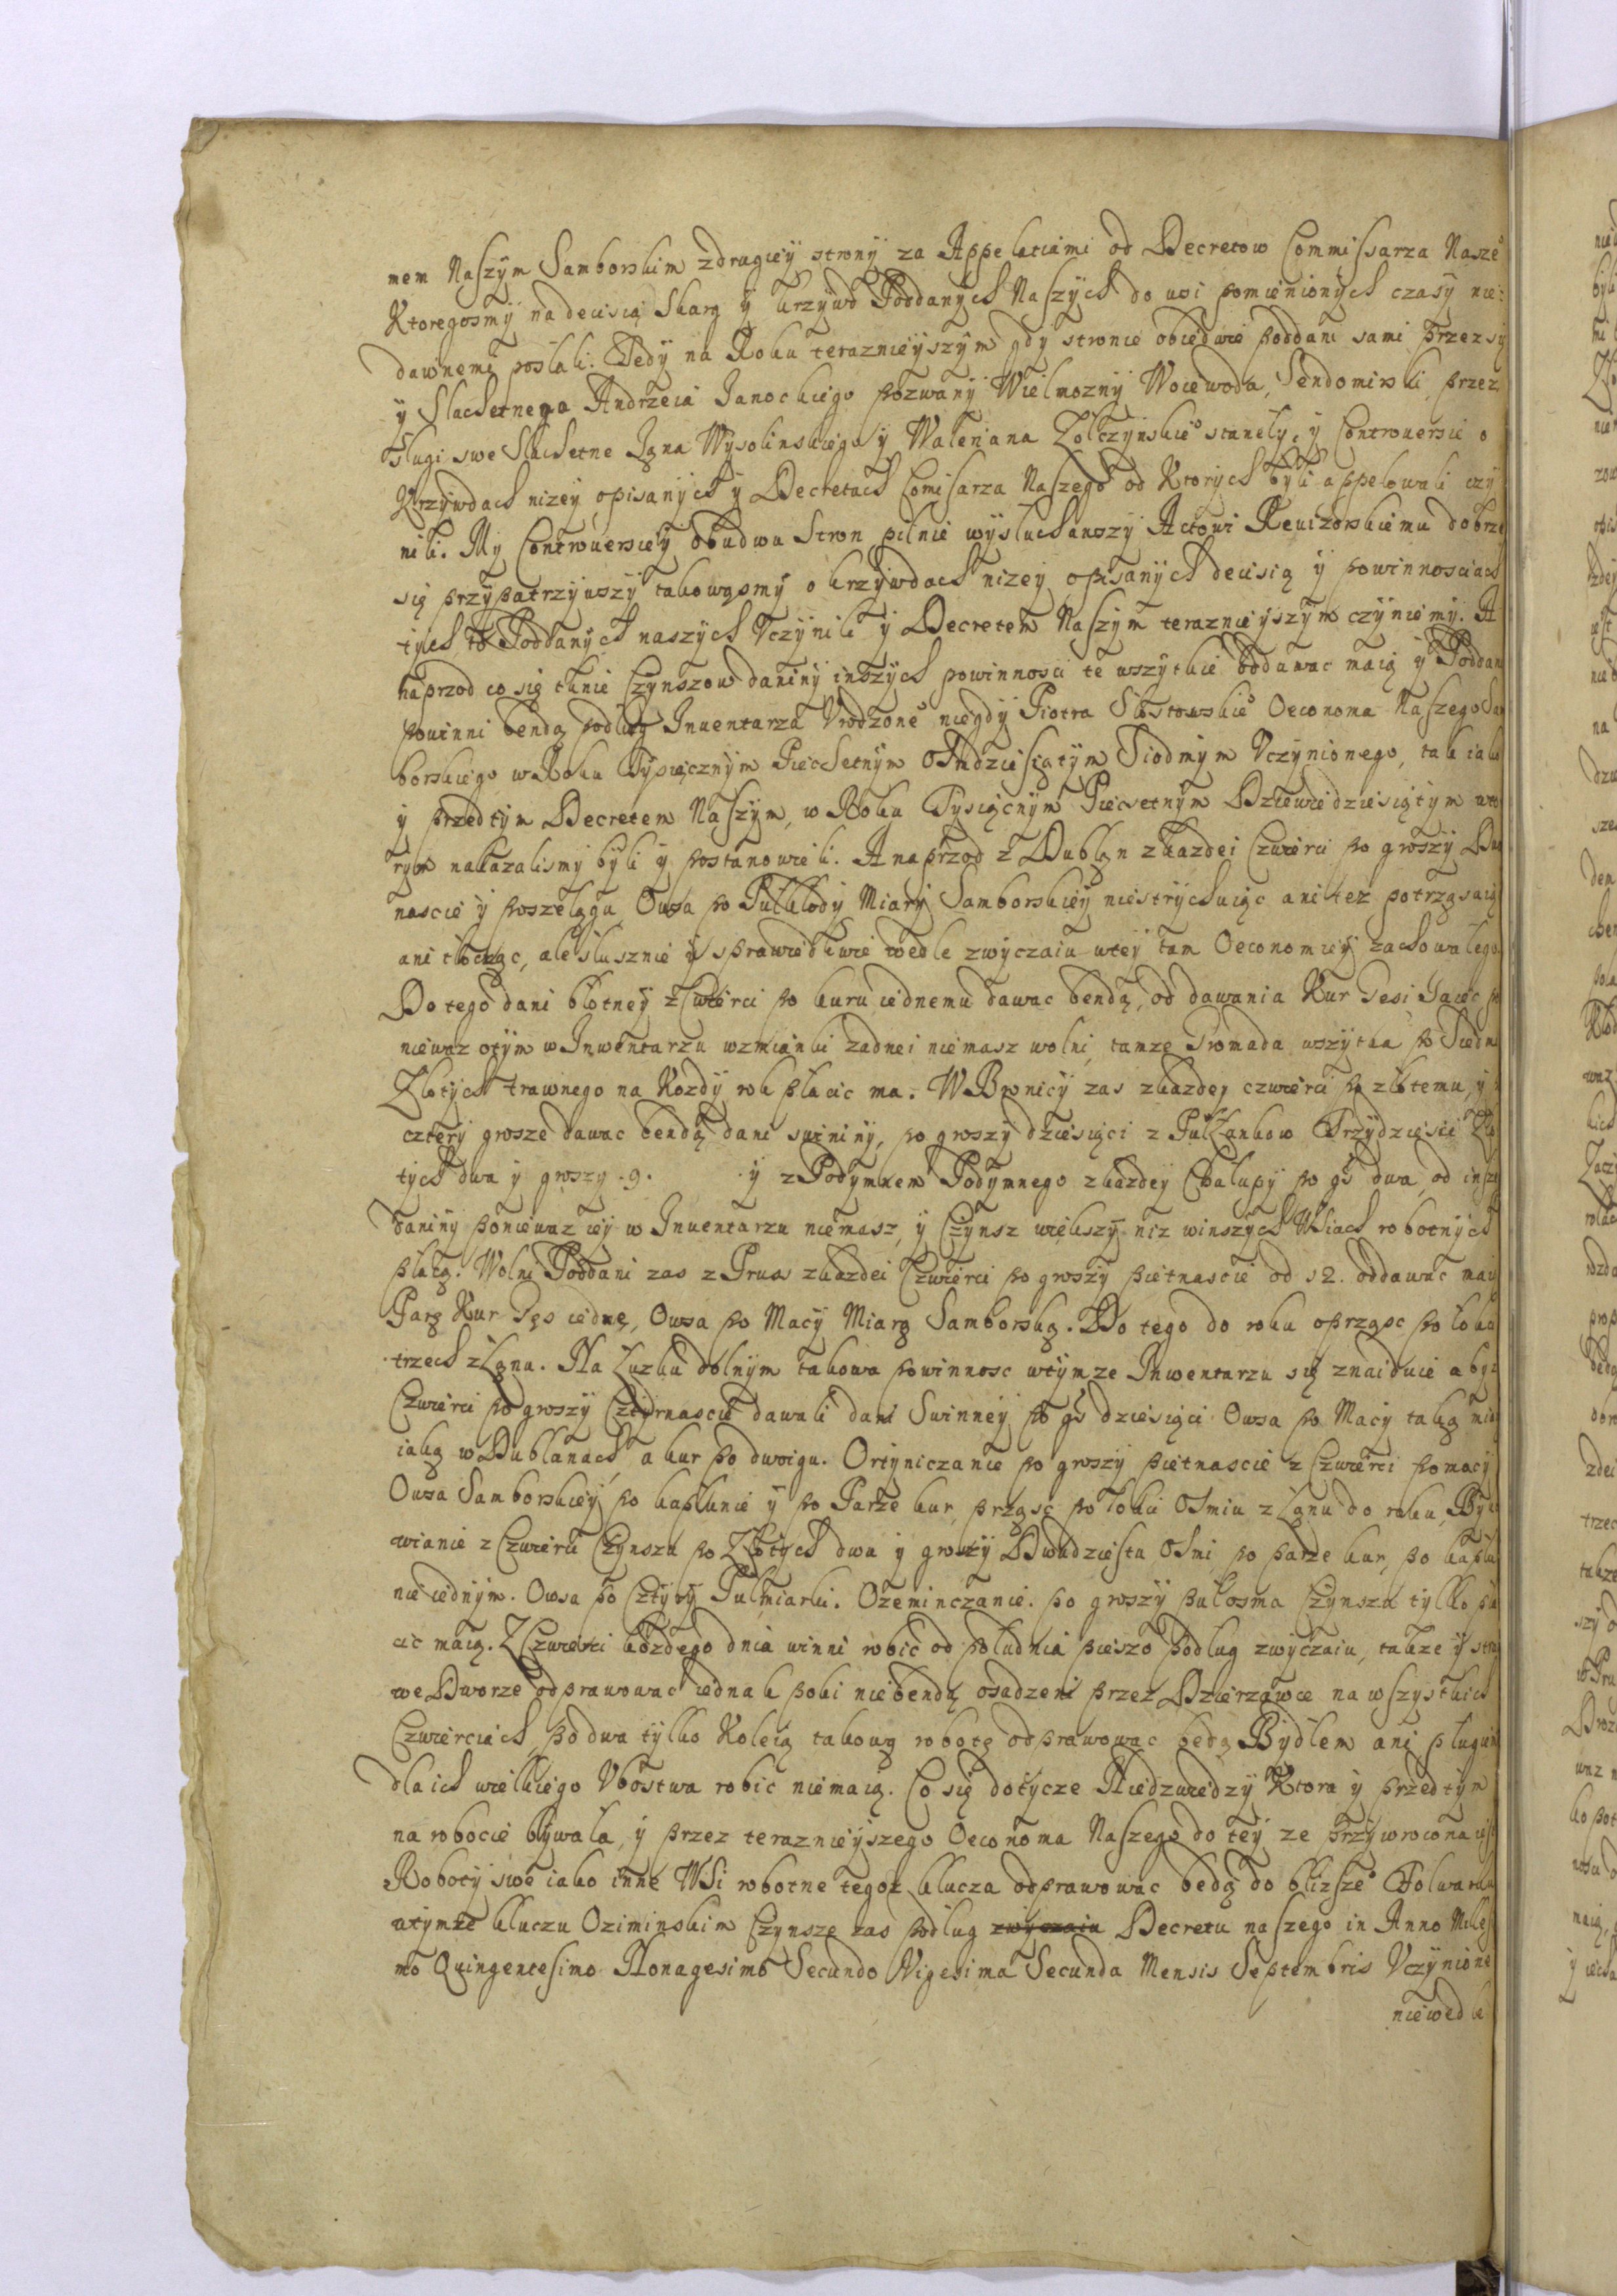 mem Naszym Samborskim zdrugiey strony za Appellatiami od Decretow Commissarza Nasze°
Ktoregosmy na decisią Skarg y krzywd Poddanych Naszych do wsi pomienionych czasy nie:
dawnemi posłali. Tedy na Roku teraznieyszym gdy stronie obiedwie poddani sami przez się
y Slachetnego Andrzeia Janockiego pozwany Wielmozny Woiewoda Sendomirski przez
sługi swe Slachetne Jana Wysolinskiego y Waleriana Zolczynskie° staneły, y Controuersie o
Krzywdach nizey opisanych y Decretach Comisarza Naszego od Ktorych byli appelowali czy
nili. My Controuersiey obudwu Stron pilnie wysłuchawszy Actowi Reuizorskiemu dobrze
się przypatrzywszy takowąsmy o krzywdach nizey opisanych decisią y powinnosciach
tych to Poddanych naszych Vczynili y Decretem Naszym teraznieyszym czyniemy. A
naprzod co się tknie Czynszow daniny inszych powinnosci te wszytkie oddawac maią y Poddani
powinni bendą podług Inuentarza Vrodzone° niegdy Piotra Słostowskie° Oeconoma Naszego Sam
borskiego w Roku Tysięcznym Piecsetnym Osmdziesiątym Siodmym Vczynionego, tak iako
y przedtym Decretem Naszym, w Roku Tysiącnym Piecsetnym Dziewiedziesiątym wto
rym nakazalismy byli y postanowili. A naprzod z Dublan zkazdei Czwierci po groszy Dwa
nascie y poszelągu Owsa po Pułkłody Miary Samborskiey niestrychuiąc ani tez potrząsaiąc
ani tłocząc, ale słusznie y sprawiedliwie wedle zwyczaiu wtey tam Oeconomiey zachowałego
Do tego dani błotney z Czwierci po kuru iednemu dawac bendą, od dawania Kur Gesi Jaiec po
niewaz otym w Inwentarzu wzmianki zadnei niemasz wolni, tamze Gromada wszytka po Siedm
Złotych trawnego na Kozdy rok płacic ma. W Bronicy zas zkazdey czwierci po złotemu, y
cztery grosze dawac bendą dani swininy, po groszy dziesięci z Pułłankow Trzydziesci Zło
tych dwa y groszy .9. y z Podymkem Podymnego zkazdey Chalupy po gs dwa, od inszey
daniny poniewaz iey w Inuentarzu niemasz, y Czynsz wiekszy niz winszych Wsiach robotnych
płacą. Wolni Poddani zas z Prus zkazdei Czwierci po groszy pietnascie od 12. oddawac maią
Parę Kur Gęs iednę, Owsa po Macy Miarą Samborską. Do tego do roku oprząsc po łokci
trzech z Łanu. Na Łuzku dolnym takowa powinnosc wtymze Inwentarzu się znaiduie aby z
Czwierci po groszy Cztyrnascie dawali dani Swinney po gs dziesięci Owsa po Macy taką miarą
iaką w Dublanach, a kur po dwoigu. Ortyniczanie po groszy pietnascie z Czwierci po macy
Owsa Samborskiey po kapłunie y po Parze kur, prząsc po łokci Osmiu z Łanu do roku, Byko
wianie z Czwierci Czynszu po Złotych dwu y groszy Dwudziestu Osmi, po parze kur, po kapłu
nie iednym. Owsa po Cztyry Pułmiarki. Ozeminczanie. po groszy pułosma Czynszu tylko pła
cic maią. Z Czwierci kozdego dnia winni robic od południa pieszo podług zwyczaiu, takze y stroz
we Dworze odprawowac iednak poki niebendą osadzeni przez Dzierzawce na wszystkich
Czwierciach, po dwa tylko Koleią takową robotę odprawowac będą Bydłem ani pługiem
dla ich wielkiego Vbostwa robic niemaią. Co się dotycze Niedzwiedzy Ktora y przedtym
na robocie bywała, y przez teraznieyszego Oeconoma Naszego do tey ze przywrocona iest
Roboty swe iako inne Wsi robotne tegoz klucza odprawowac bedą do blizsze° Folwarku
wtymze kluczu Oziminskim Czynsze zas podług zwyczaiu Decretu naszego in Anno Milesi
mo Quingentesimo Nonagesimo Secundo Vigesima Secunda Mensis Septembris Vczynione
niewedle